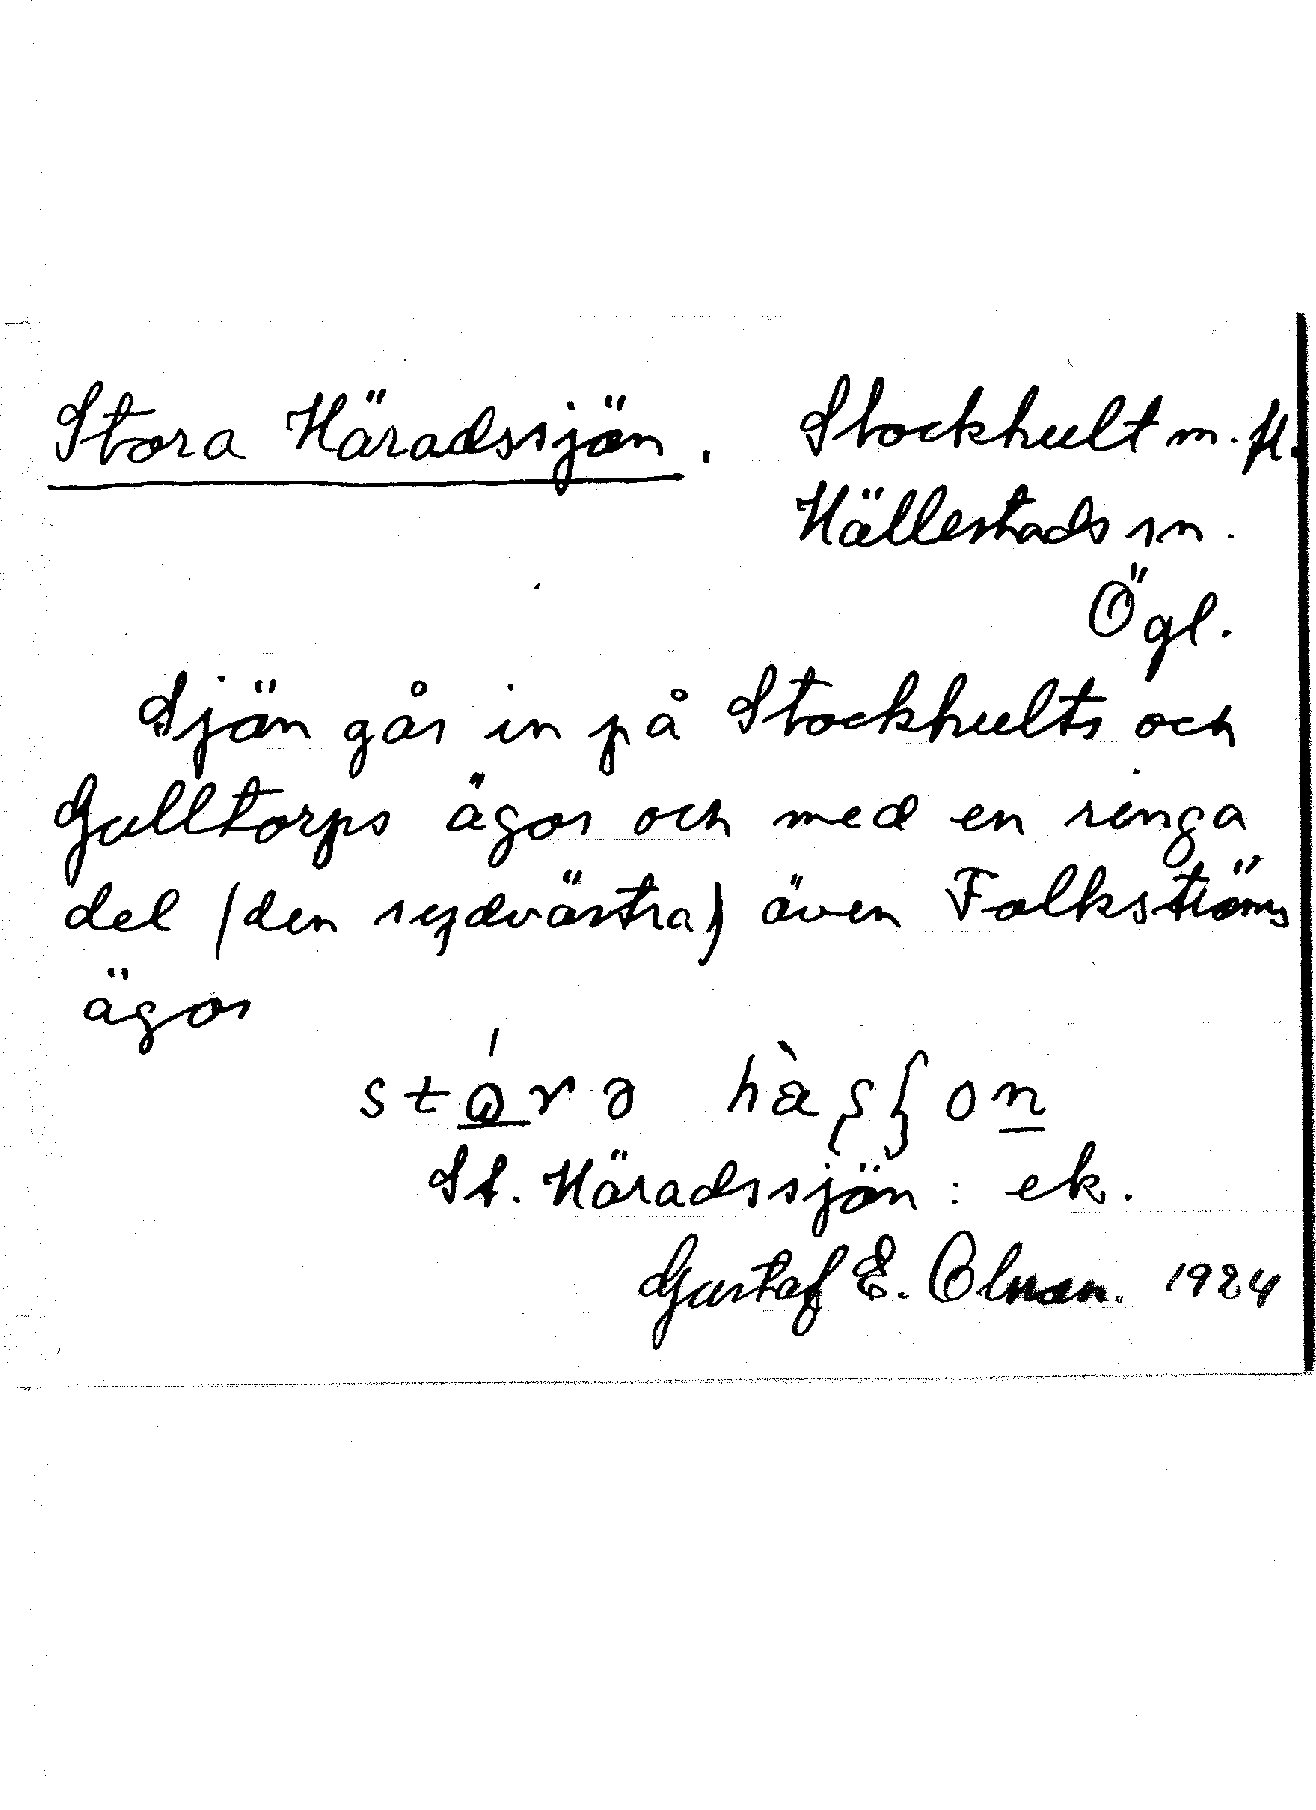 Stora Häradssjön. Stockhult m. fl.
Hällestads sn.
Ögl.
Sjön går in på Stockhults och
Gulltorps ägor och med en ringa
del (den sydvästra) även Folkströms
ägor
St. Häradssjön: ek.
Gustaf E. Olman. 1924